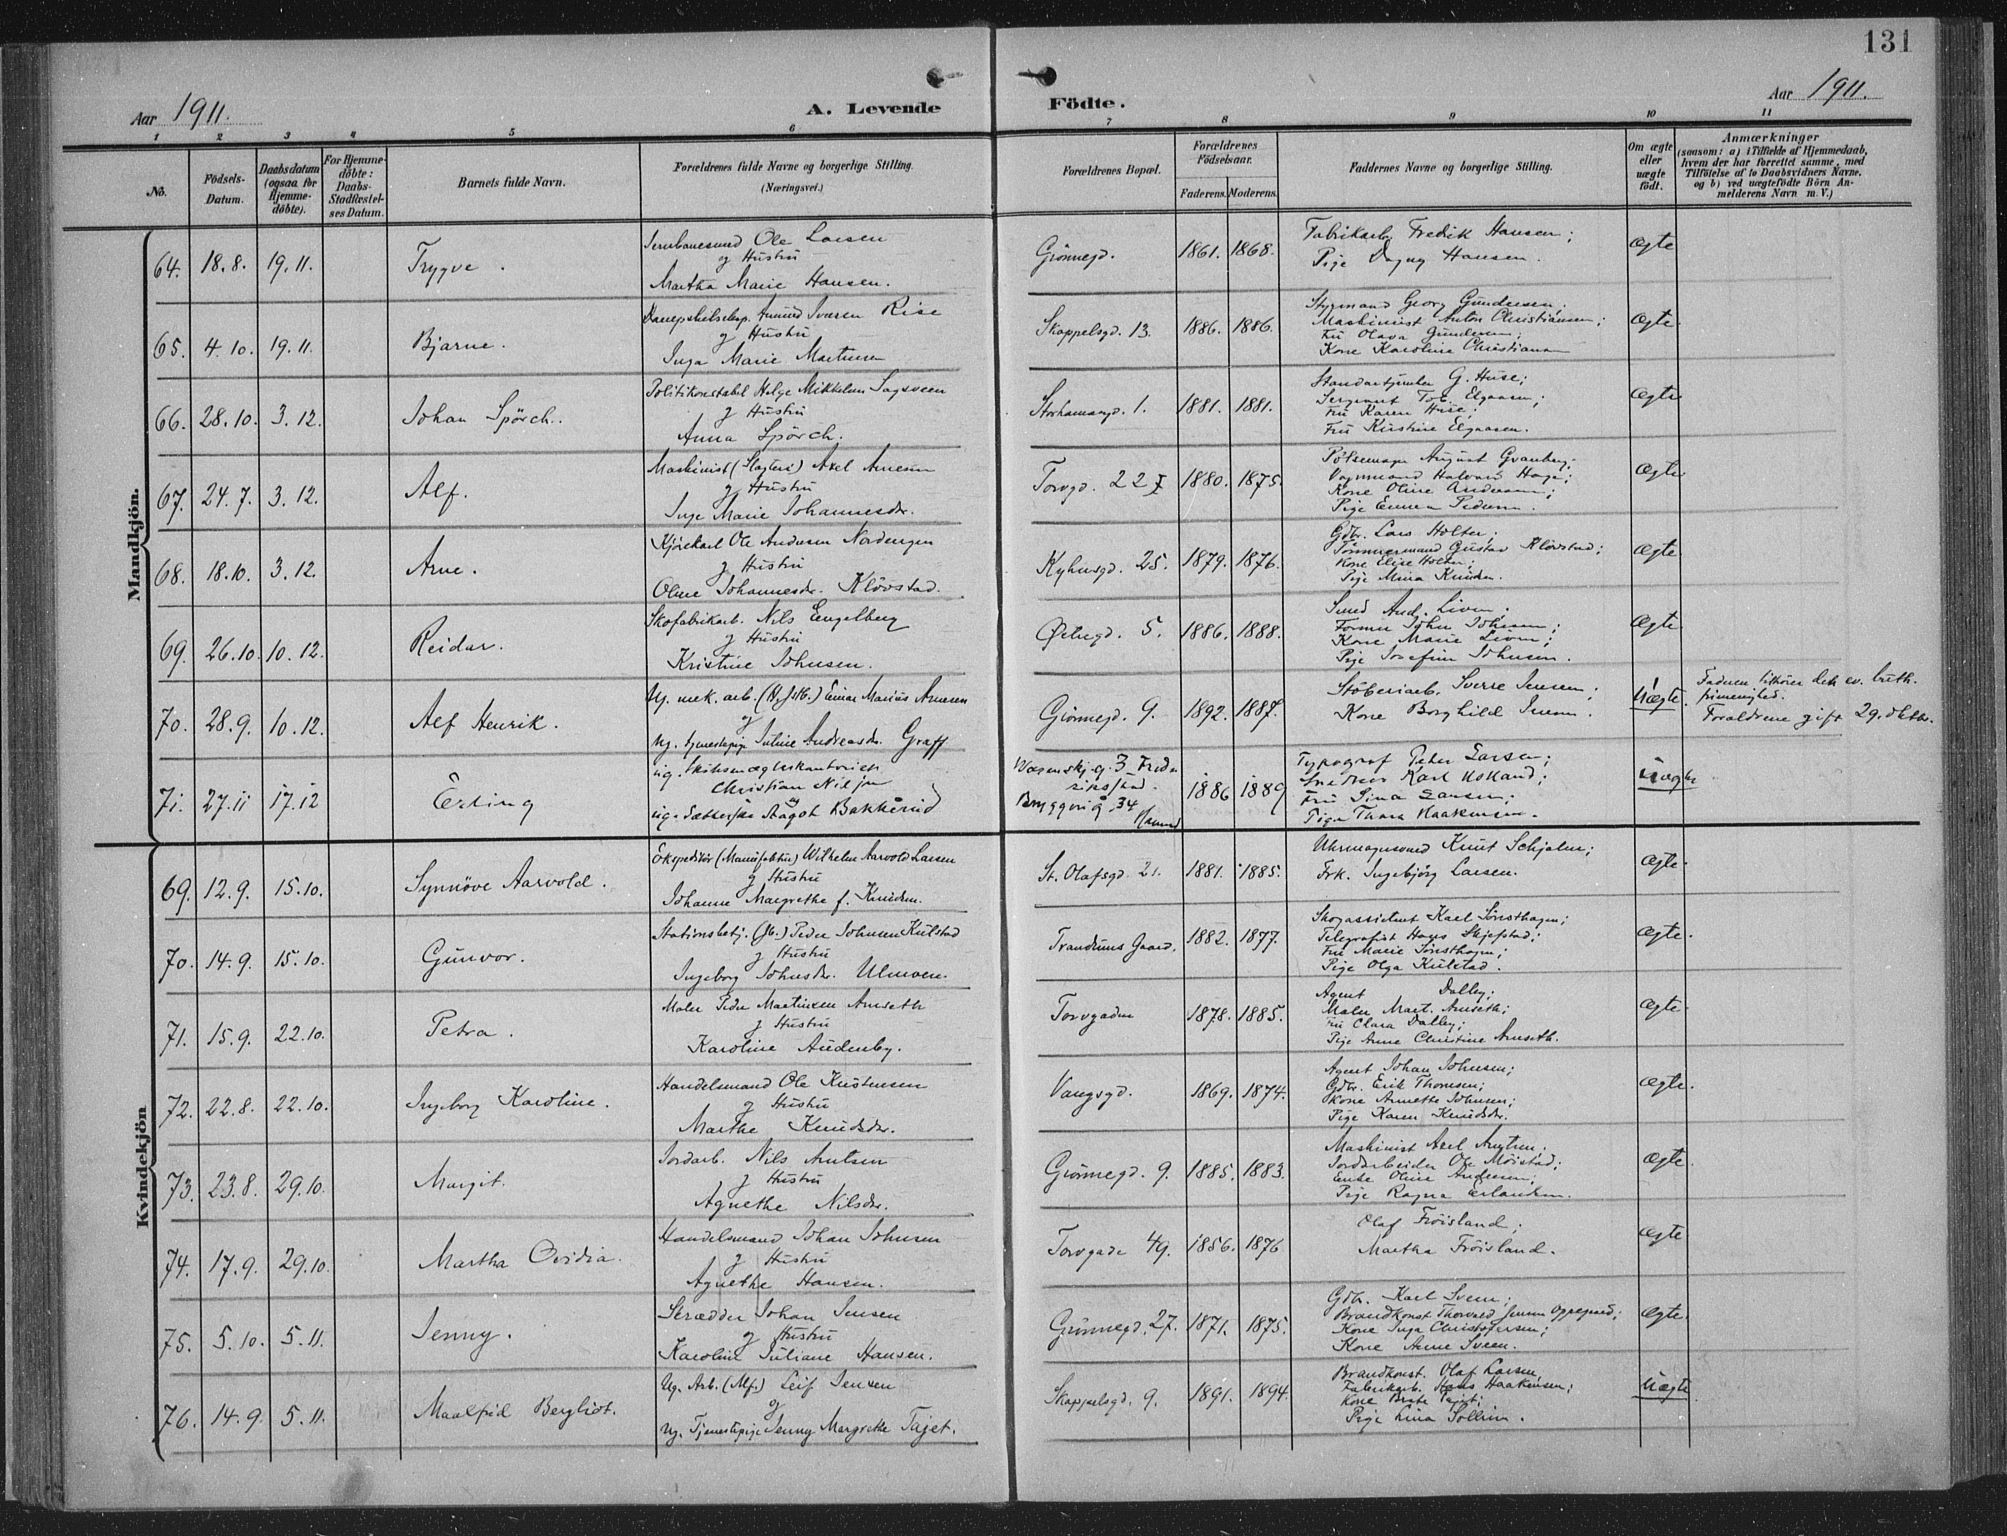 131
Aar 1911.
A. Levende Födte.
Aar 1911.
1 2 3 4 5 6 7 8 9 10 11
No.
Födsels-
Datum.
Daabsdatum
(ogsaa for
Hjemme-
döbte).
For Hjemme-
döbte:
Daabs-
Stadfæstel-
ses Datum.
Barnets fulde Navn.
Forældrenes fulde Navne og borgerlige Stilling.
(Næringsvei.)
Forældrenes Bopæl.
Forældrenes
Födselsaar.
Faderens. Moderens.
Faddernes Navne og borgerlige Stilling.
Om ægte
eller
uægte
födt.
Anmærkninger
(saasom: a) i Tilfælde af Hjemmedaab,
hvem der har forrettet samme, med
Tilföielse af to Daabsvidners Navne,
og b) ved uægtefödte Börn An-
melderens Navn m. V.)
Mandkjön.
64. 18.8. 19.11. Trygve.
Jernbanemand Ole Larsen
og Hustru
Martha Marie Hansen.
Grönnegd. 1861. 1868.
Fabrikarb. Fredik Hansen;
Pige Dagny Hansen.
Ægte
65. 4.10. 19.11. Bjarne.
Rise
og Hustru
Inga Marie Martinsen
Skappelsgd. 13. 1886. 1886.
Styrmand Georg Gundersen;
Maskinist Anton Christiansen;
Fru Olava Gundersen;
Kone Karoline Christiansen
Ægte
66. 28.10. 3.12. Johan Spörch.
Politikonstabel Helge Mikkelsen Sagsveen
og Hustru
Anna Spörch.
Storhamargd. 1. 1881. 1881.
G. Huse;
Sergeant Tob. Elgaaen;
Fru Karen Huse;
Fru Kirstine Elgaaen.
Ægte
67. 24.7. 3.12. Alf.
Maskinist (Slagteri) Axel Arnesen
og Hustru
Inge Marie Johannesdr.
Torvgd. 22 I 1880. 1875.
Pölsemager August Granberg;
Vognmand Halvard Hage;
Kone Oline Andersen;
Pige Emma Pedersen.
Ægte
68. 18.10. 3.12. Arne.
Kjörekarl Ole Andersen Nordengen
og Hustru
Oline Johannesdr. Klövstad.
Kyhnsgd. 25. 1879. 1876.
Gdbr. Lars Holter;
Tömmermand Gustav Klövstad;
Kone Elise Holter;
Pige Mina Knudsen.
Ægte
69. 26.10. 10.12. Reidar.
Skofabrikarb. Nils Engelberg
og Hustru
Kristine Johnsen.
Østregd. 5. 1886. 1888.
Smed And. Liven;
Former John Johnsen;
Kone Marie Liven;
Pige Josefine Johnsen.
Ægte
70. 28.9. 10.12. Alf Henrik.
Ug. mek. arb. Einar Marius Arnesen
og
Ug. tjenestepige Juline Andreasdr. Graff
Grönnegd. 9. 1892. 1887.
Stöberiarb. Sverre Jensen;
Kone Borghild Jensen.
Uægte.
Faderen tilhører den ev. luth.
frimenighed.
Forældrene gift 29. oktbr.
71. 27.11 17.12 Erling
ug.
Christian Nilsen
ug. Sætterske Aagot Bakkerud
1886 1889
Typograf Peter Larsen;
Karl Holland;
Fru Sina Larsen;
Pige Thora Haakensen.
uægte
Kvindekjön
69. 12.9. 15.10. Synnöve Aarvold.
Ekspeditör (Manufaktur) Wilhelm Aarvold Larsen
og Hustru
Johanne Margrethe f. Knudsen.
St. Olafsgd. 21. 1881. 1885.
Uhrmagersvend Knut Schjølen;
Frk. Ingebjörg Larsen.
Ægte.
70. 14.9. 15.10. Gunvor.
Stationsbetj. (Jb.) Peder Johnsen Kulstad
og Hustru
Ingeborg Johnsdr. Ulmoen.
Trandums Gaard. 1882. 1877.
Skogassistent Karl Sönsthagen;
Telegrafist Hans Skjefstad;
Fru Marie Sönsthagen;
Pige Olga Kulstad.
Ægte.
71. 15.9. 22.10. Petra.
Maler Peder Martinsen Arneseth
og Hustru
Karoline Audenby.
Torvgaden 1878. 1885.
Agent Dalby;
Maler Mart. Arneseth;
Fru Clara Dalby;
Pige Anne Christine Arneseth.
Ægte.
72. 22.8. 22.10. Ingeborg Karoline.
Handelsmand Ole Kristensen
og Hustru
Marthe Knudsdr.
Vangsgd. 1869. 1874.
Agent Johan Johnsen;
Gdbr. Erik Thomsen;
Kone Annette Johnsen;
Pige Karen Knudsdr.
Ægte.
73. 23.8. 29.10. Margit.
Jordarb. Nils Antsen
og Hustru
Agnethe Nilsdr.
Grönnegd. 9. 1885. 1883.
Maskinist Axel
Jordarbeider Ole Möistad;
Enke Oline Andersen;
Pige Ragna Erlandsen.
Ægte.
74. 17.9. 29.10. Martha Ovidia.
Handelsmand Johan Johnsen
og Hustru
Agnethe Hansen.
Torvgade 49. 1856. 1876
Olaf Fröisland;
Martha Fröisland.
Ægte
75. 5.10. 5.11. Jenny.
Skrædder Johan Jensen
og Hustru
Karoline Juliane Hansen.
Grönnegd. 27. 1871. 1875.
Gdbr. Karl Sveen;
Brandkonst. Thorvald Jensen Oppegaard;
Kone Inga Christofersen;
Kone Anne Sveen.
Ægte.
76. 14.9. 5.11. Maalfrid Bergliot.
Ug. Arb. Leif Jensen
og
Ug. Tjenestepige Jenny Margrethe Tajet.
Skappelsgd. 9. 1891. 1894.
Brandkonst. Olaf Larsen,
Fabrikarb. Hans Haakensen;
Kone Berte Tajet;
Pige Lina Sollien.
Uægte